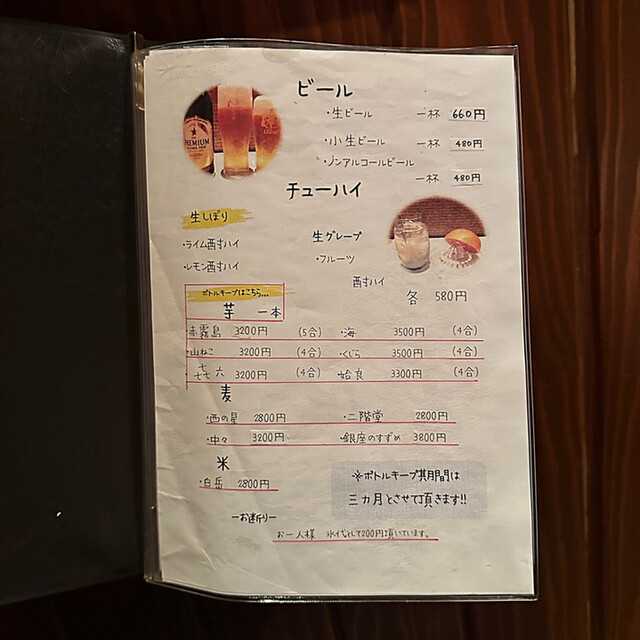 ビール
・生ビール 一杯 660円
・小生ビール 一杯 480円
・ノンアルコールビール
一杯 480円
PREMIUM
チューハイ
生しぼり
・ライム酎ハイ
・レモン酎ハイ
生グレープ
・フルーツ
酎ハイ
各 580円
ボトルキープはこちら...
芋 一本
・赤霧島 3200円 (5合) ・海 3500円 (4合)
・山ねこ 3200円 (4合) ・くじら 3500円 (4合)
・七七七 六 3200円 (4合) ・蛤良 3300円 (4合)
麦
・西の星 2800円 ・二階堂 2800円
・中々 3200円 ・銀座のすずめ 3800円
米
・白岳 2800円
※ボトルキープ期間は
三ヵ月とさせて頂きます!!
ーお断りー
お一人様 氷代として200円頂いています。